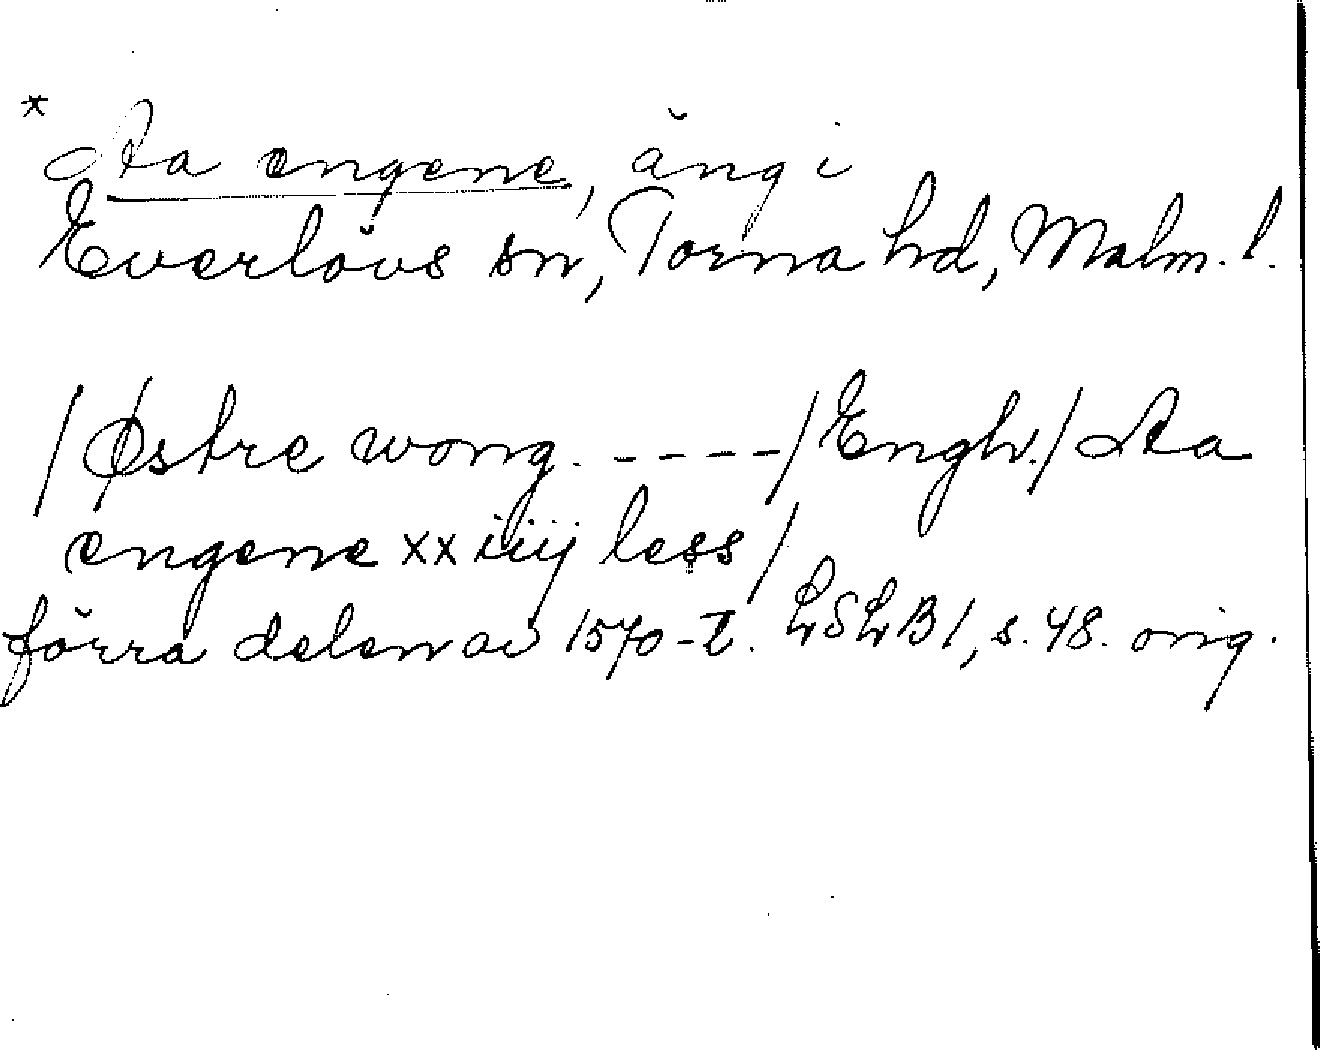 * Aa engene, äng i
Everlövs sn, Torna hd, Malm. l.
/Østre wong. - - - - /Engh./ Aa
engene xx iiij less/
förra delen av 1570-t. LSLB1, s. 48. orig.